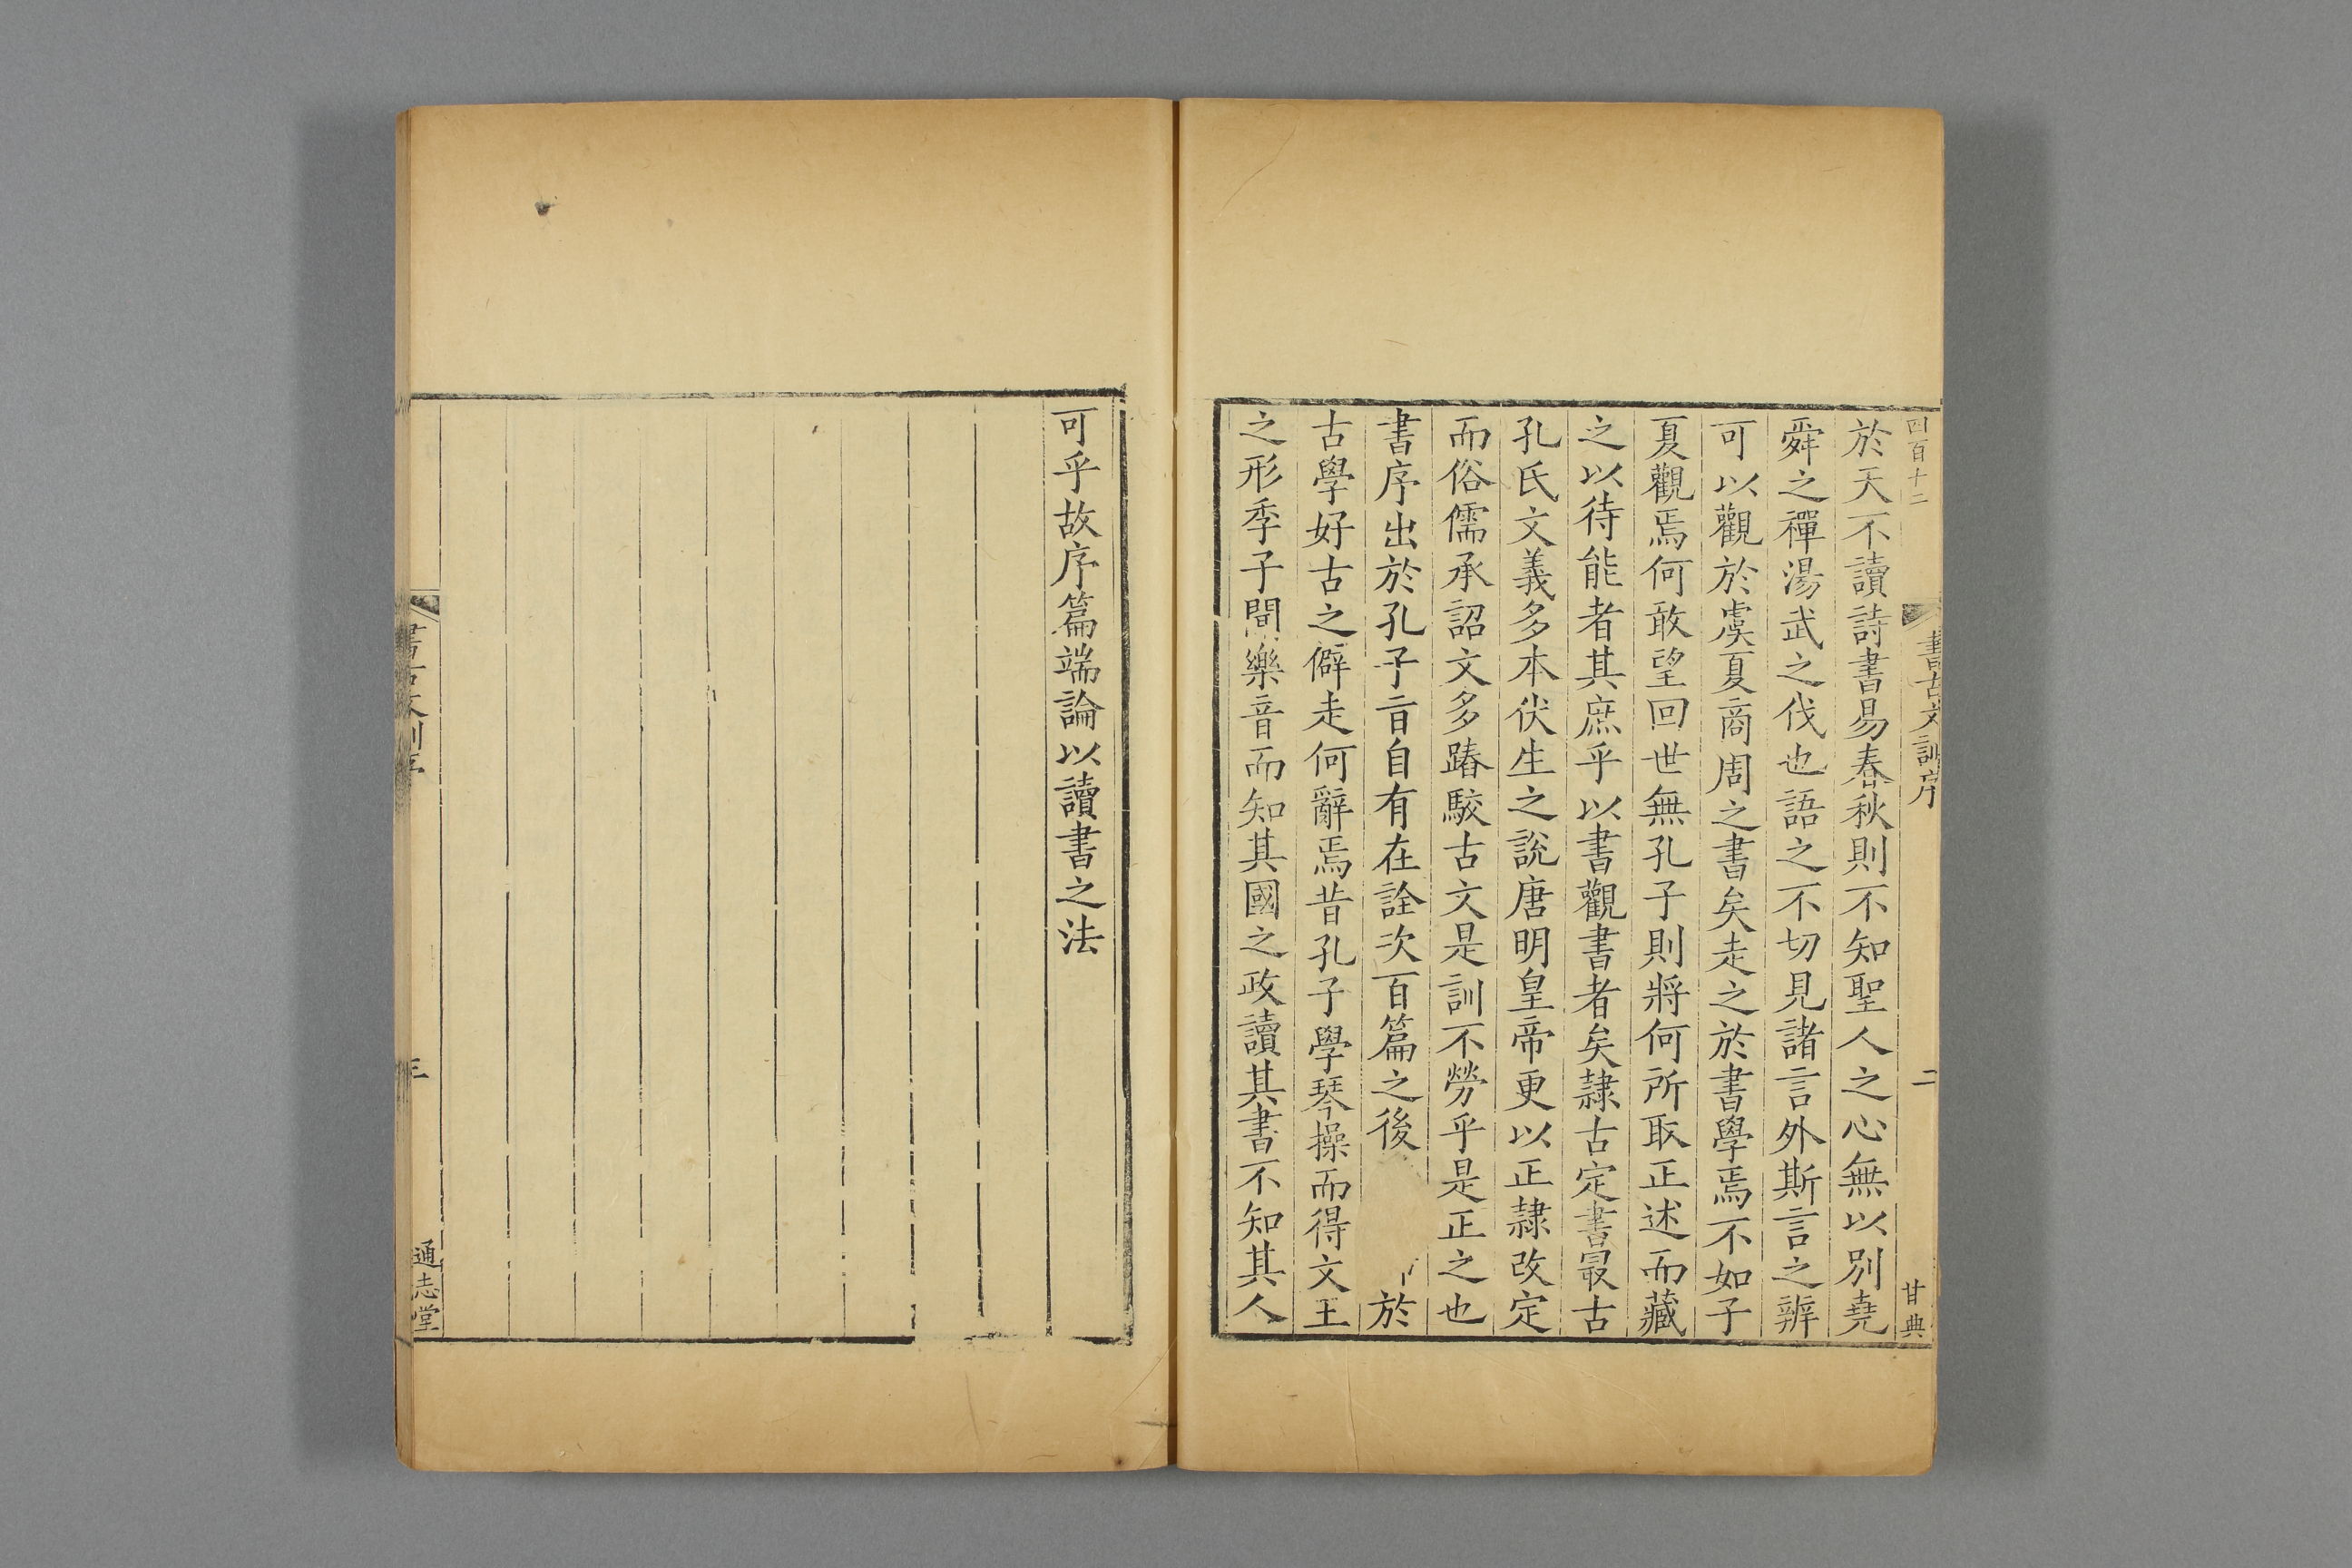 四百十二
書古文訓序
二
甘典
於天不讀詩書易春秋則不知聖人之心無以別堯
舜之禪湯武之伐也語之不切見諸言外斯言之辨
可以觀於虞夏商周之書矣走之於書學焉不如子
夏觀焉何敢望回世無孔子則將何所取正述而藏
之以待能者其庶乎以書觀書者矣隸古定書最古
孔氏文義多本伏生之說唐明皇帝更以正隸改定
而俗儒承詔文多踳駮古文是訓不勞乎是正之也
書序出於孔子㫖自有在詮次百篇之後於
古學好古之僻走何辭焉昔孔子學琴操而得文王
之形季子間樂音而知其國之政讀其書不知其人
可乎故序篇端論以讀書之法
書古文訓序
三
通志堂